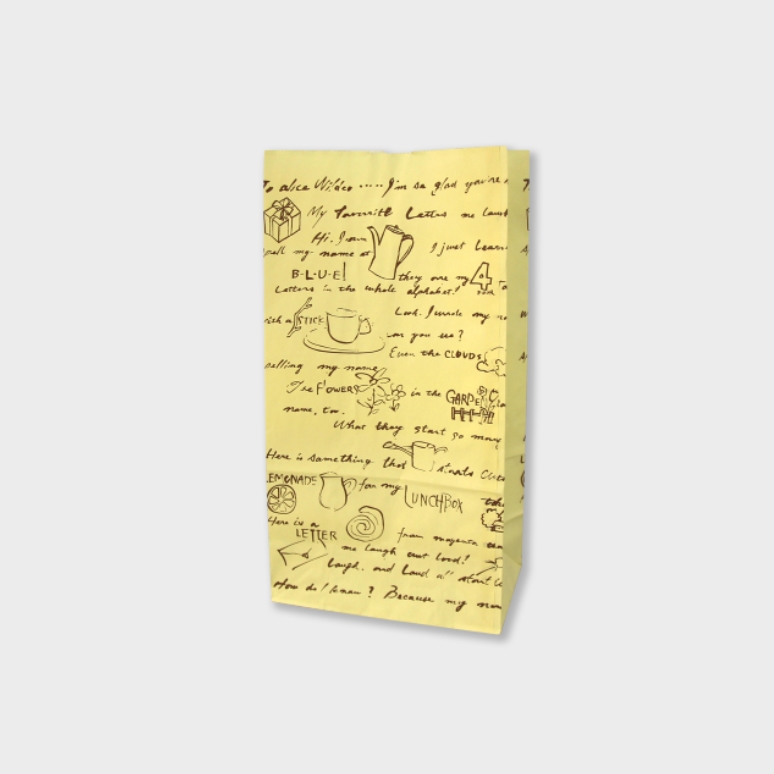 To alice Wildco ..... I'm so glad you're
My Favorite Letters me laugh
Hi. I am
spell my name at I just learn
B-L-U-E! they are my 4
Letters in the whole alphabet! To
with a STICK Look. I wrote my
can you see?
Even the CLOUDS
spelling my name
The FLOWERS in the GARDEN
name, too.
What they start so many
Here is something that starts
LEMONADE for my LUNCHBOX
Here is a LETTER from magenta
me laugh out loud!
laugh. and Loud all start
How do I know? Because my